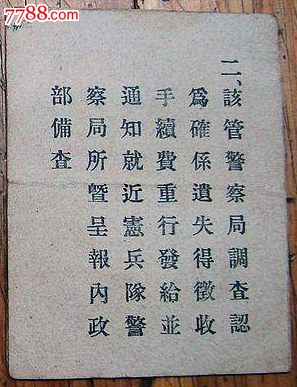 7788.com
二、該管警察局調查認
爲確係遺失得徵收
手續費重行發給並
通知就近憲兵隊警
察局所暨呈報內政
部備查